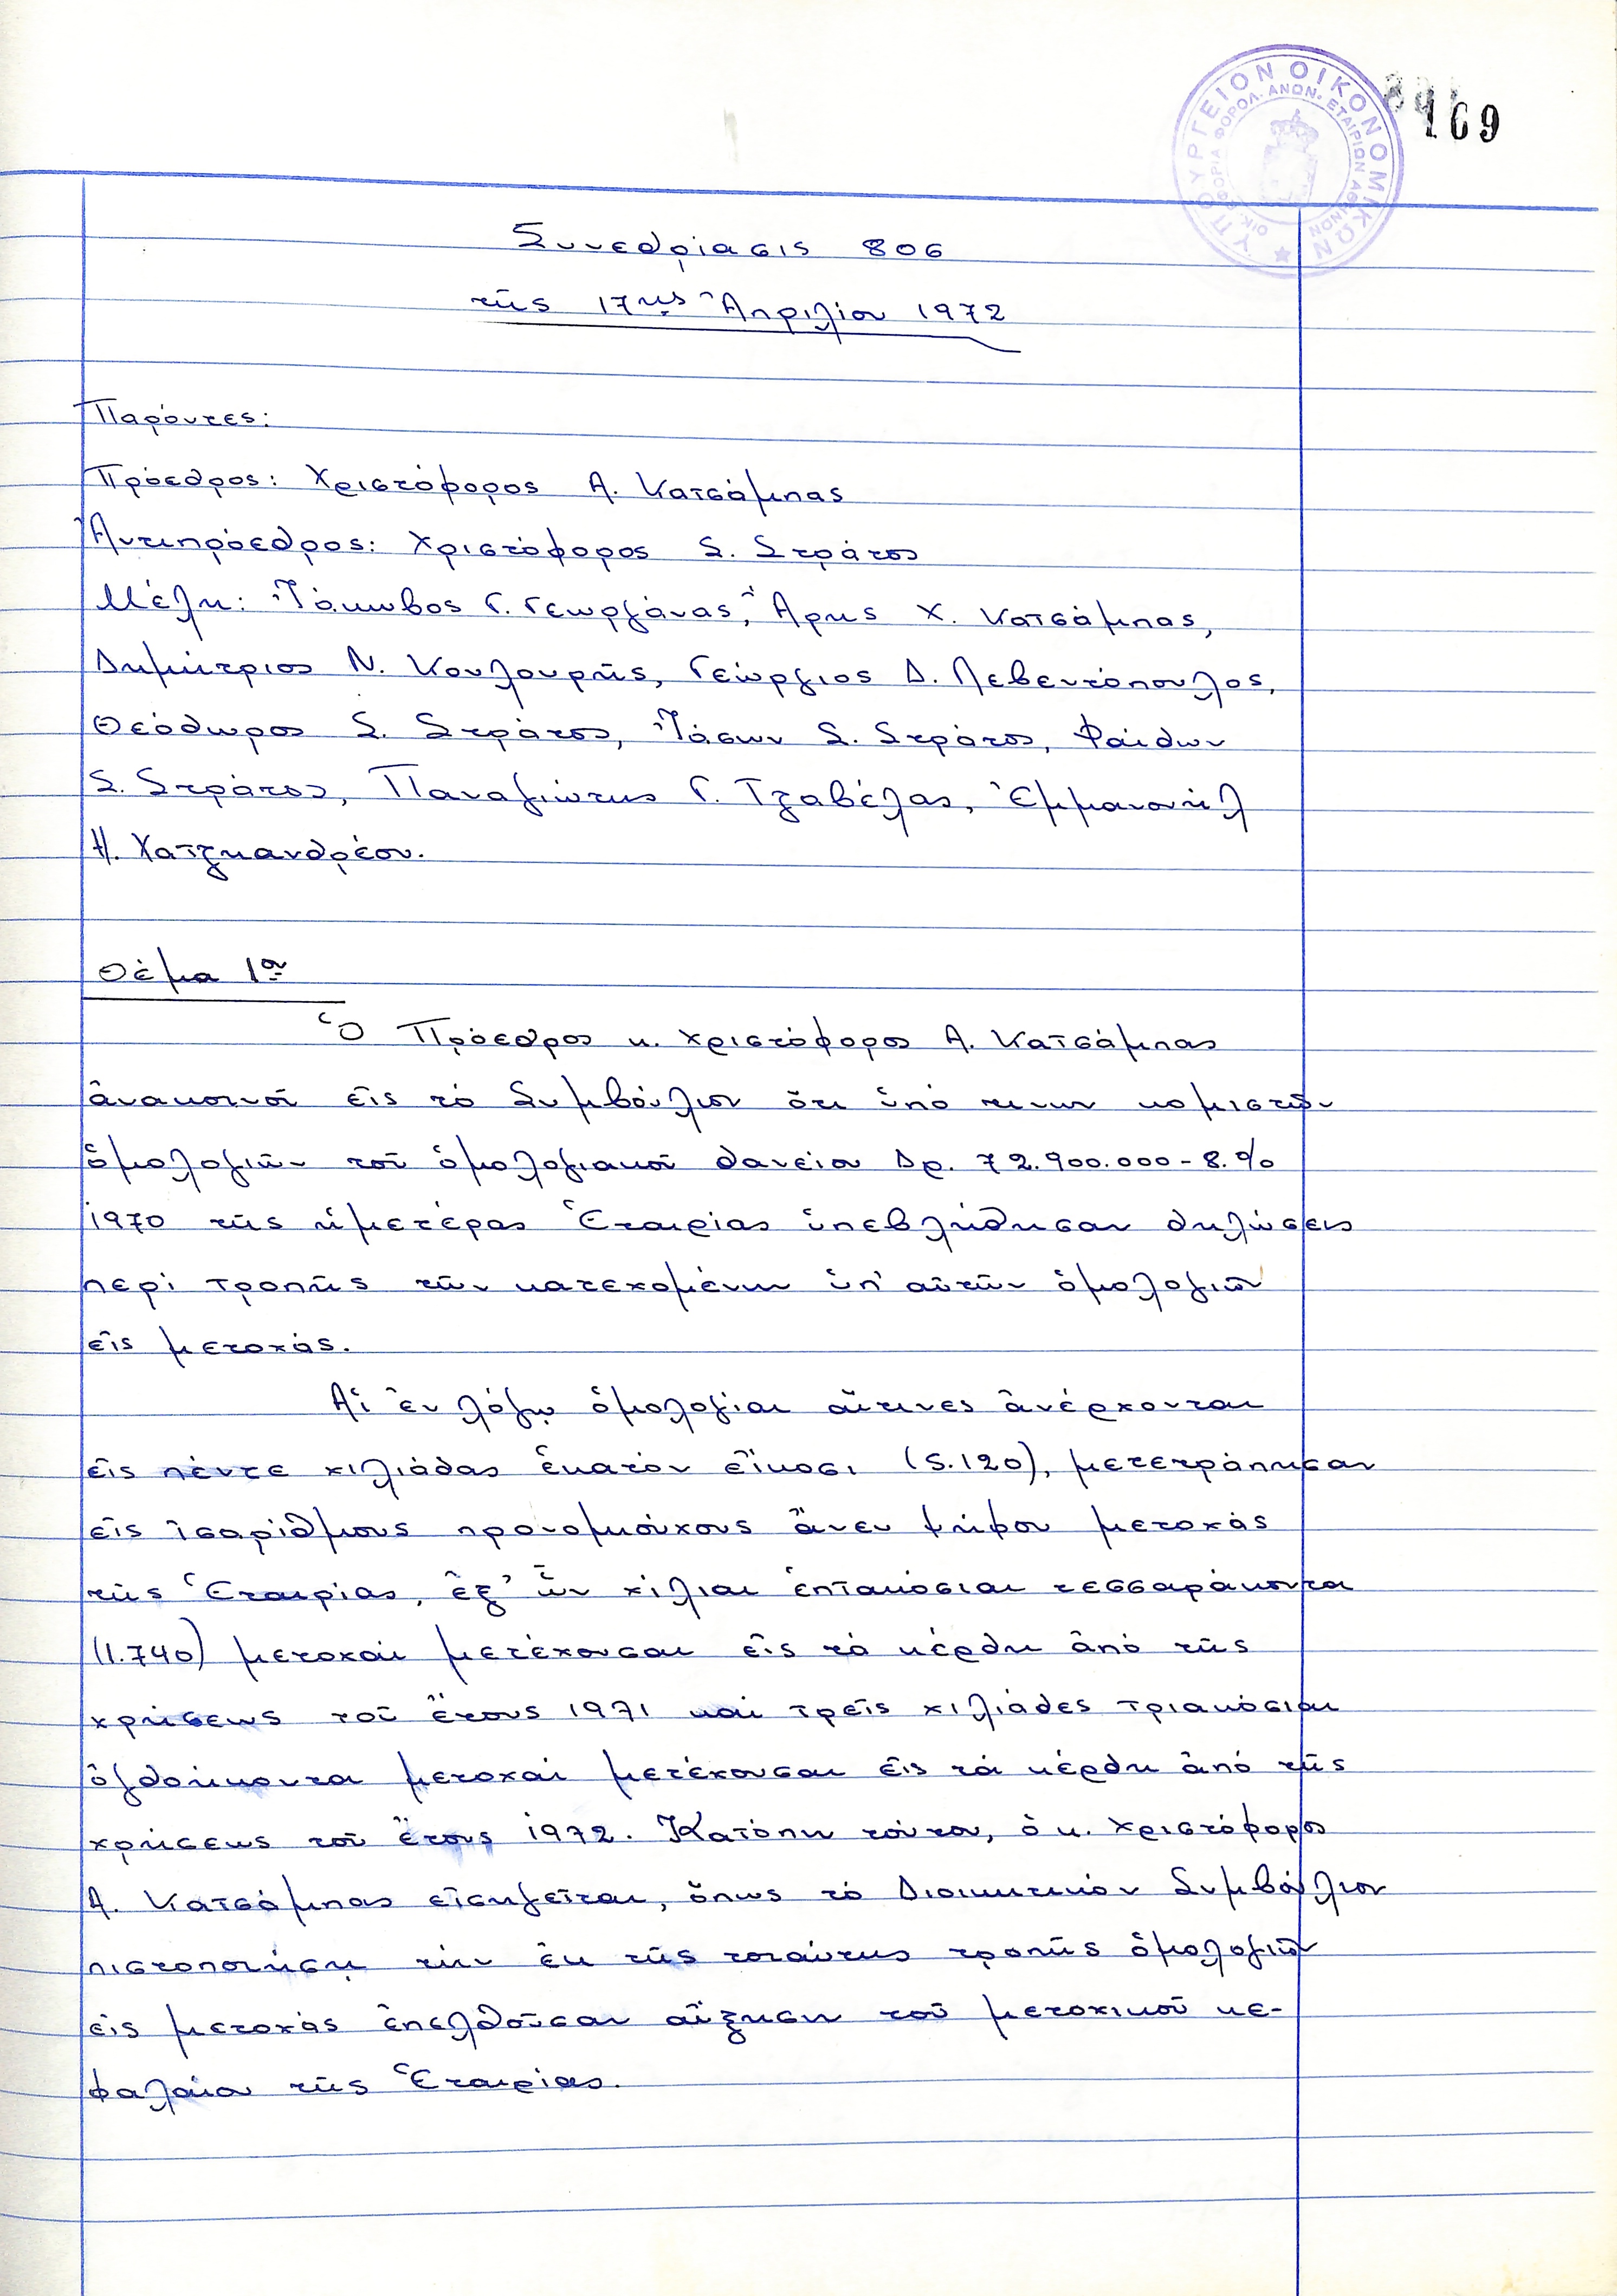 ΥΠΟΥΡΓΕΙΟΝ ΟΙΚΟΝΟΜΙΚΩΝ
ΟΙΚ. ΕΦΟΡΙΑ ΦΟΡΟΛ. ΑΝΩΝ. ΕΤΑΙΡΙΩΝ ΑΘΗΝΩΝ
169
Συνεδρίασις 806
τῆς 17ης Ἀπριλίου 1972
Παρόντες:
Πρόεδρος: Χριστόφορος Α. Κατσάμπας
Ἀντιπρόεδρος: Χριστόφορος Σ. Στράτος
Μέλη: Ἰάκωβος Γ. Γεωργάνας, Ἄρης Χ. Κατσάμπας,
Δημήτριος Ν. Κουλουρῆς, Γεώργιος Δ. Λεβεντόπουλος,
Θεόδωρος Σ. Στράτος, Ἰάσων Σ. Στράτος, Φαίδων
Σ. Στράτος, Παναγιώτης Γ. Τζαβέλας, Ἐμμανουήλ
Η. Χατζηανδρέου.
Θέμα 1ον
Ὁ Πρόεδρος κ. Χριστόφορος Α. Κατσάμπας
ἀνακοινοῖ εἰς τό Συμβούλιον ὅτι ὑπό τινων κομιστῶν
ὁμολογιῶν τοῦ ὁμολογιακοῦ δανείου Δρ. 72.900.000-8.%
1970 τῆς ἡμετέρας Ἑταιρίας ὑπεβλήθησαν δηλώσεις
περί τροπῆς τῶν κατεχομένων ὑπ' αὐτῶν ὁμολογιῶν
εἰς μετοχάς.
Αἱ ἐν λόγῳ ὁμολογίαι αἵτινες ἀνέρχονται
εἰς πέντε χιλιάδας ἑκατόν εἴκοσι (5.120), μετετράπησαν
εἰς ἰσαρίθμους προνομιούχους ἄνευ ψήφου μετοχάς
τῆς Ἑταιρίας, ἐξ' ὧν χίλιαι ἑπτακόσιαι τεσσαράκοντα
(1.740) μετοχαί μετέχουσαι εἰς τά κέρδη ἀπό τῆς
χρήσεως τοῦ ἔτους 1971 καί τρεῖς χιλιάδες τριακόσιαι
ὀγδοήκοντα μετοχαί μετέχουσαι εἰς τά κέρδη ἀπό τῆς
χρήσεως τοῦ ἔτους 1972. Κατόπιν τούτου, ὁ κ. Χριστόφορος
Α. Κατσάμπας εἰσηγεῖται, ὅπως τό Διοικητικόν Συμβούλιον
πιστοποιήσῃ τήν ἐκ τῆς τοιαύτης τροπῆς ὁμολογιῶν
εἰς μετοχάς ἐπελθοῦσαν αὔξησιν τοῦ μετοχικοῦ κε-
φαλαίου τῆς Ἑταιρίας.